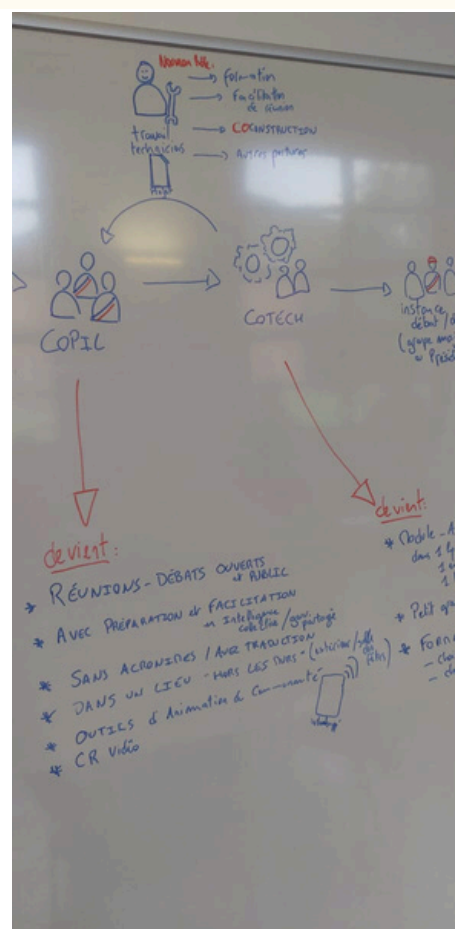 Nouveau Rôle.
→ formation
→ Facilitation
de réunion
→ COCONSTRUCTION
→ Autres postures
travail
technicius
COPIL
COTECH
instance
débat/
devient:
* RÉUNIONS-DÉBATS OUVERTS
et PUBLIC
* AVEC PRÉPARATION et FACILITATION
en Intelligence
collective/gouv. partagée
* SANS ACRONIMES / AVEC TRADUCTION
* DANS UN LIEU "HORS LES MURS" (extérieur/salle
des fêtes)
* OUTILS d'Animation de Communauté
* CR Vidéo
devient:
* Module
dans 1
1
1
* Petit
* FORMA